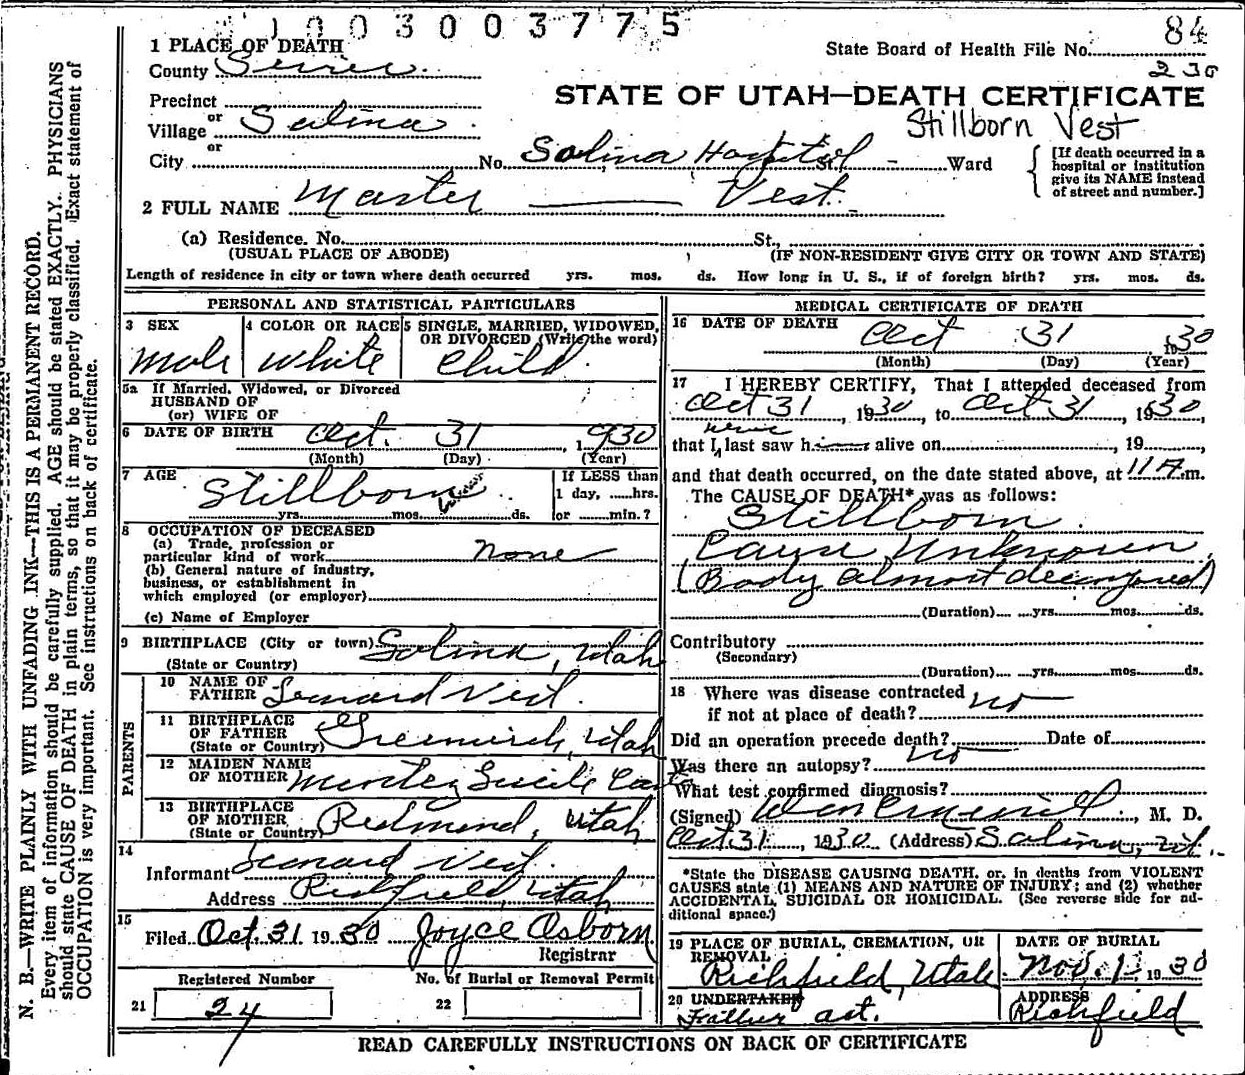 1003003775
84
1 PLACE OF DEATH
State Board of Health File No.
County Sevier
230
STATE OF UTAH—DEATH CERTIFICATE
Precinct
or
Village Salina
Stillborn Vest
or
City No. Salina Hospital St., - Ward
[If death occurred in a
hospital or institution
give its NAME instead
of street and number.]
2 FULL NAME Master — Vest.
(a) Residence. No. St.,
(USUAL PLACE OF ABODE) (IF NON-RESIDENT GIVE CITY OR TOWN AND STATE)
Length of residence in city or town where death occurred yrs. mos. ds. How long in U. S., if of foreign birth? yrs. mos. ds.
PERSONAL AND STATISTICAL PARTICULARS
3 SEX 4 COLOR OR RACE 5 SINGLE, MARRIED, WIDOWED,
OR DIVORCED (Write the word)
Male White Child
5a If Married, Widowed, or Divorced
HUSBAND OF
(or) WIFE OF
6 DATE OF BIRTH Oct. 31 1930
(Month) (Day) (Year)
7 AGE Stillborn
If LESS than
1 day, ......hrs.
yrs. mos. ds. or ......min.?
8 OCCUPATION OF DECEASED
(a) Trade, profession or
particular kind of work none
(b) General nature of industry,
business, or establishment in
which employed (or employer)
(c) Name of Employer
9 BIRTHPLACE (City or town) Salina, Utah
(State or Country)
PARENTS
10 NAME OF
FATHER Leonard Vest.
11 BIRTHPLACE
OF FATHER
(State or Country) Greenwich, Utah
12 MAIDEN NAME
OF MOTHER Lucile
13 BIRTHPLACE
OF MOTHER
(State or Country) Redmond, Utah
14
Informant Leonard Vest.
Address Richfield, Utah
15
Filed Oct. 31 1930 Joyce Osborn
Registrar
Registered Number No. of Burial or Removal Permit
21 24 22
MEDICAL CERTIFICATE OF DEATH
16 DATE OF DEATH Oct 31 1930
(Month) (Day) (Year)
17 I HEREBY CERTIFY, That I attended deceased from
Oct 31, 1930 to Oct 31, 1930
never
that I last saw him alive on , 19
and that death occurred, on the date stated above, at 11 A.m.
The CAUSE OF DEATH* was as follows:
Stillborn.
Cause Unknown.
(Body almost decomposed)
(Duration) yrs. mos. ds.
Contributory
(Secondary)
(Duration) yrs. mos. ds.
18 Where was disease contracted
if not at place of death? no
Did an operation precede death? Date of
Was there an autopsy? no
What test confirmed diagnosis?
(Signed) , M. D.
Oct 31, 1930 (Address) Salina, Ut.
*State the DISEASE CAUSING DEATH, or, in deaths from VIOLENT
CAUSES state (1) MEANS AND NATURE OF INJURY; and (2) whether
ACCIDENTAL, SUICIDAL OR HOMICIDAL. (See reverse side for ad-
ditional space.)
19 PLACE OF BURIAL, CREMATION, OR
REMOVAL
Richfield, Utah
DATE OF BURIAL
Nov. 1 1930
20 UNDERTAKER
Father act.
ADDRESS
Richfield
READ CAREFULLY INSTRUCTIONS ON BACK OF CERTIFICATE
N. B.—WRITE PLAINLY WITH UNFADING INK—THIS IS A PERMANENT RECORD.
Every item of information should be carefully supplied. AGE should be stated EXACTLY. PHYSICIANS
should state CAUSE OF DEATH in plain terms, so that it may be properly classified. Exact statement of
OCCUPATION is very important. See instructions on back of certificate.